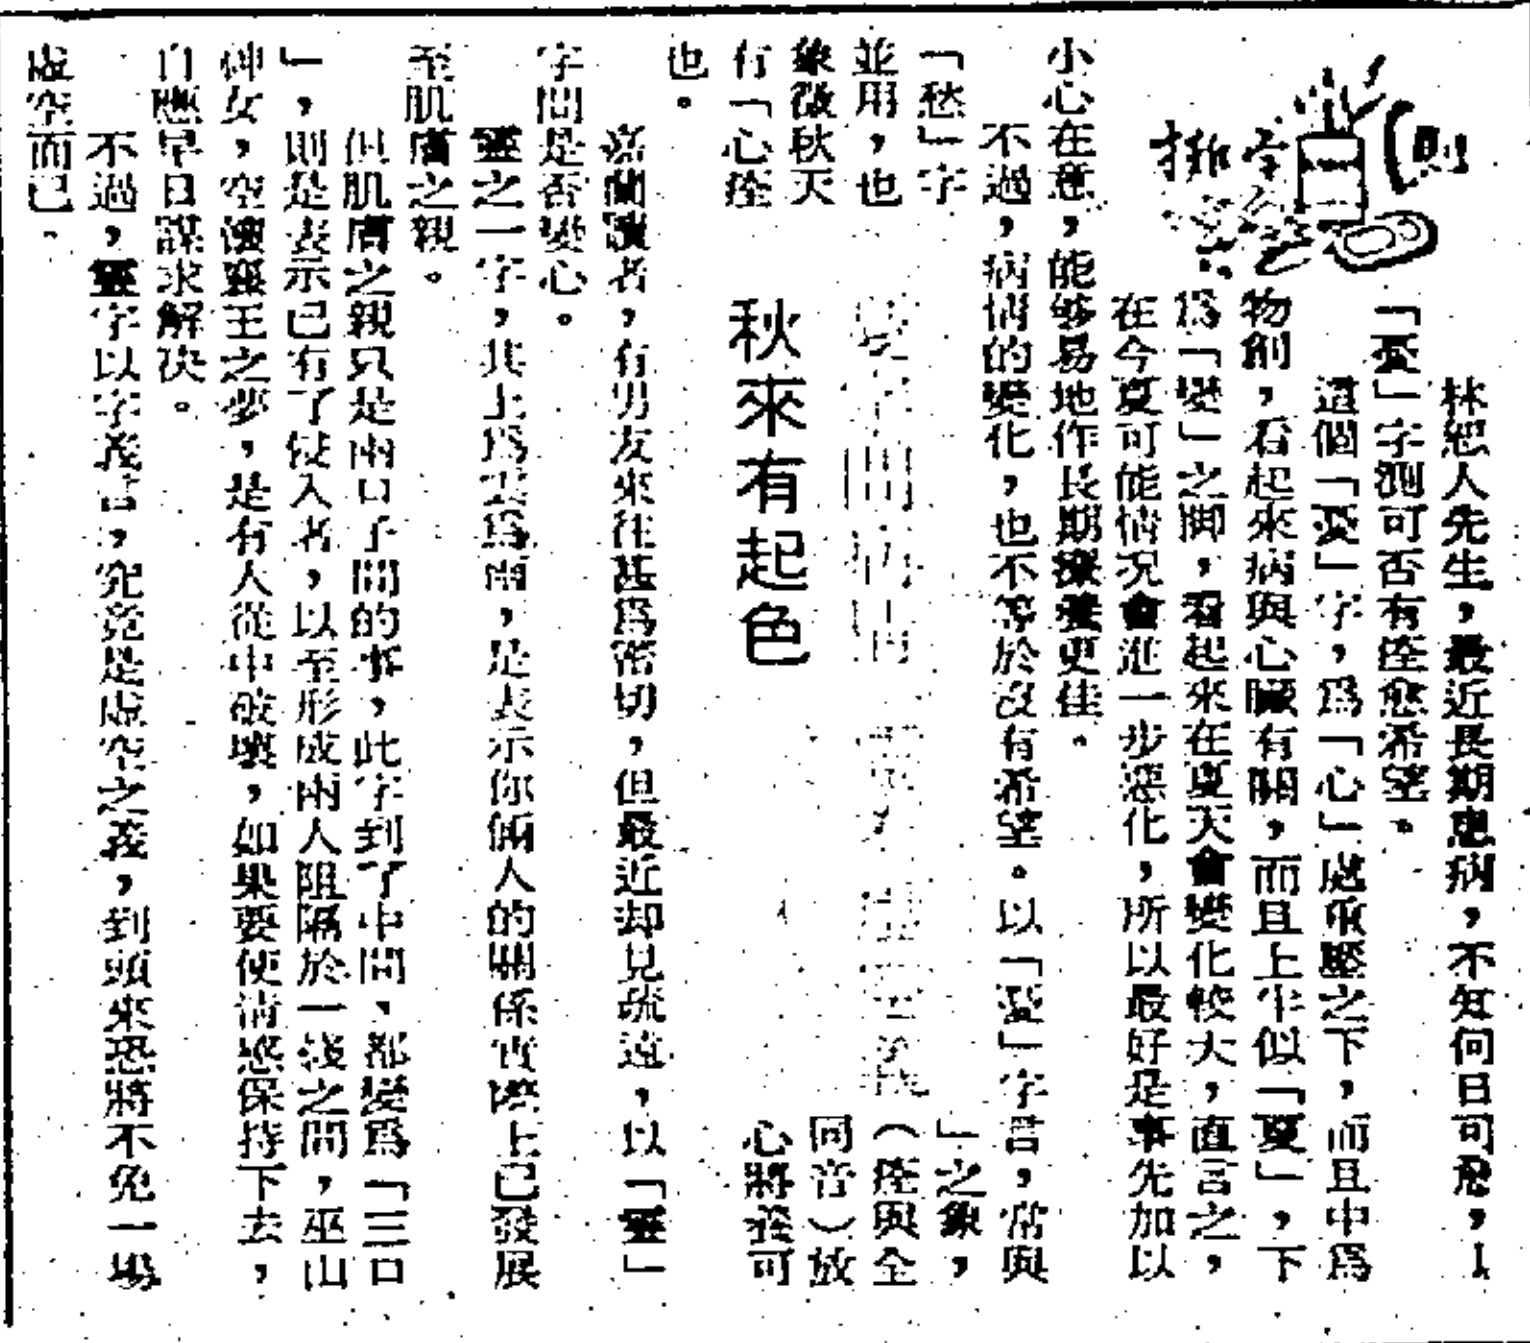 林恕人先生，最近長期患病，不知何日可愈，以
「憂」字測可否有痊愈希望。
這個「憂」字，爲「心」處重壓之下，而且中爲
物創，看起來病與心臟有關，而且上半似「夏」，下
爲「變」之脚，看起來在夏天會變化較大，直言之，
在今夏可能情况會進一步惡化，所以最好是事先加以
小心在意，能够易地作長期療養更佳。
不過，病情的變化，也不等於沒有希望。以「憂」字言，常與
「愁」字
並用，也
象徵秋天
有「心痊
」之象，
（痊與全
同音）放
心將養可
也。
憂字問病情
秋來有起色
嘉蘭讀者，有男友來往甚爲密切，但最近却見疏遠，以「靈」
字問是否變心。
靈之一字，其上爲雲爲雨，是表示你倆人的關係實際上已發展
至肌膚之親。
但肌膚之親只是兩口子間的事，此字到了中間，都變爲「三口
」，則是表示已有了侵入者，以至形成兩人阻隔於一綫之間，巫山
神女，空 襄王之夢，是有人從中破壞，如果要使情感保持下去，
自應早日謀求解决。
不過，靈字以字義言，究竟是虛空之義，到頭來恐將不免一場
虛空而已。